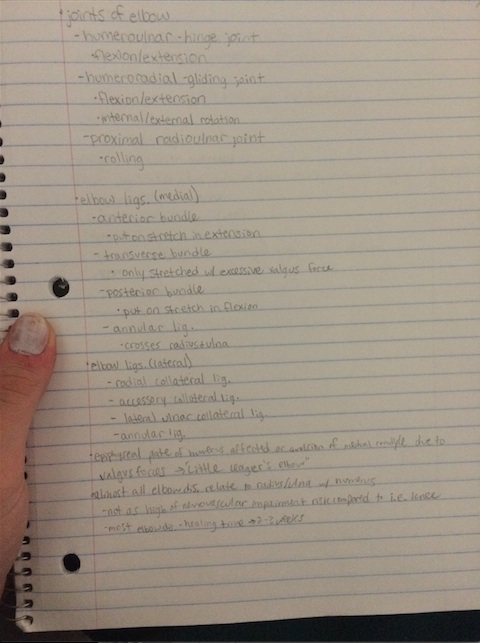 • joints of elbow
- humeroulnar - hinge joint
• flexion/extension
- humeroradial - gliding joint
• flexion/extension
• internal/external rotation
- proximal radioulnar joint
• rolling
• elbow ligs. (medial)
- anterior bundle
• put on stretch in extension
- transverse bundle
• only stretched w/ excessive valgus force
- posterior bundle
• put on stretch in flexion
- annular lig.
• crosses radius+ulna
• elbow ligs (lateral)
- radial collateral lig.
- accessory collateral lig.
- lateral ulnar collateral lig.
- annular lig.
• epiphyseal plate of humerus affected or avulsion of medial due to
valgus forces → "Little leager's elbow"
• almost all elbow dis. relate to radius/ulna w/ humerus
- not as high of neurovascular impairment risk compared to i.e. knee
• most elbow dis. - healing time → 2-3 weeks